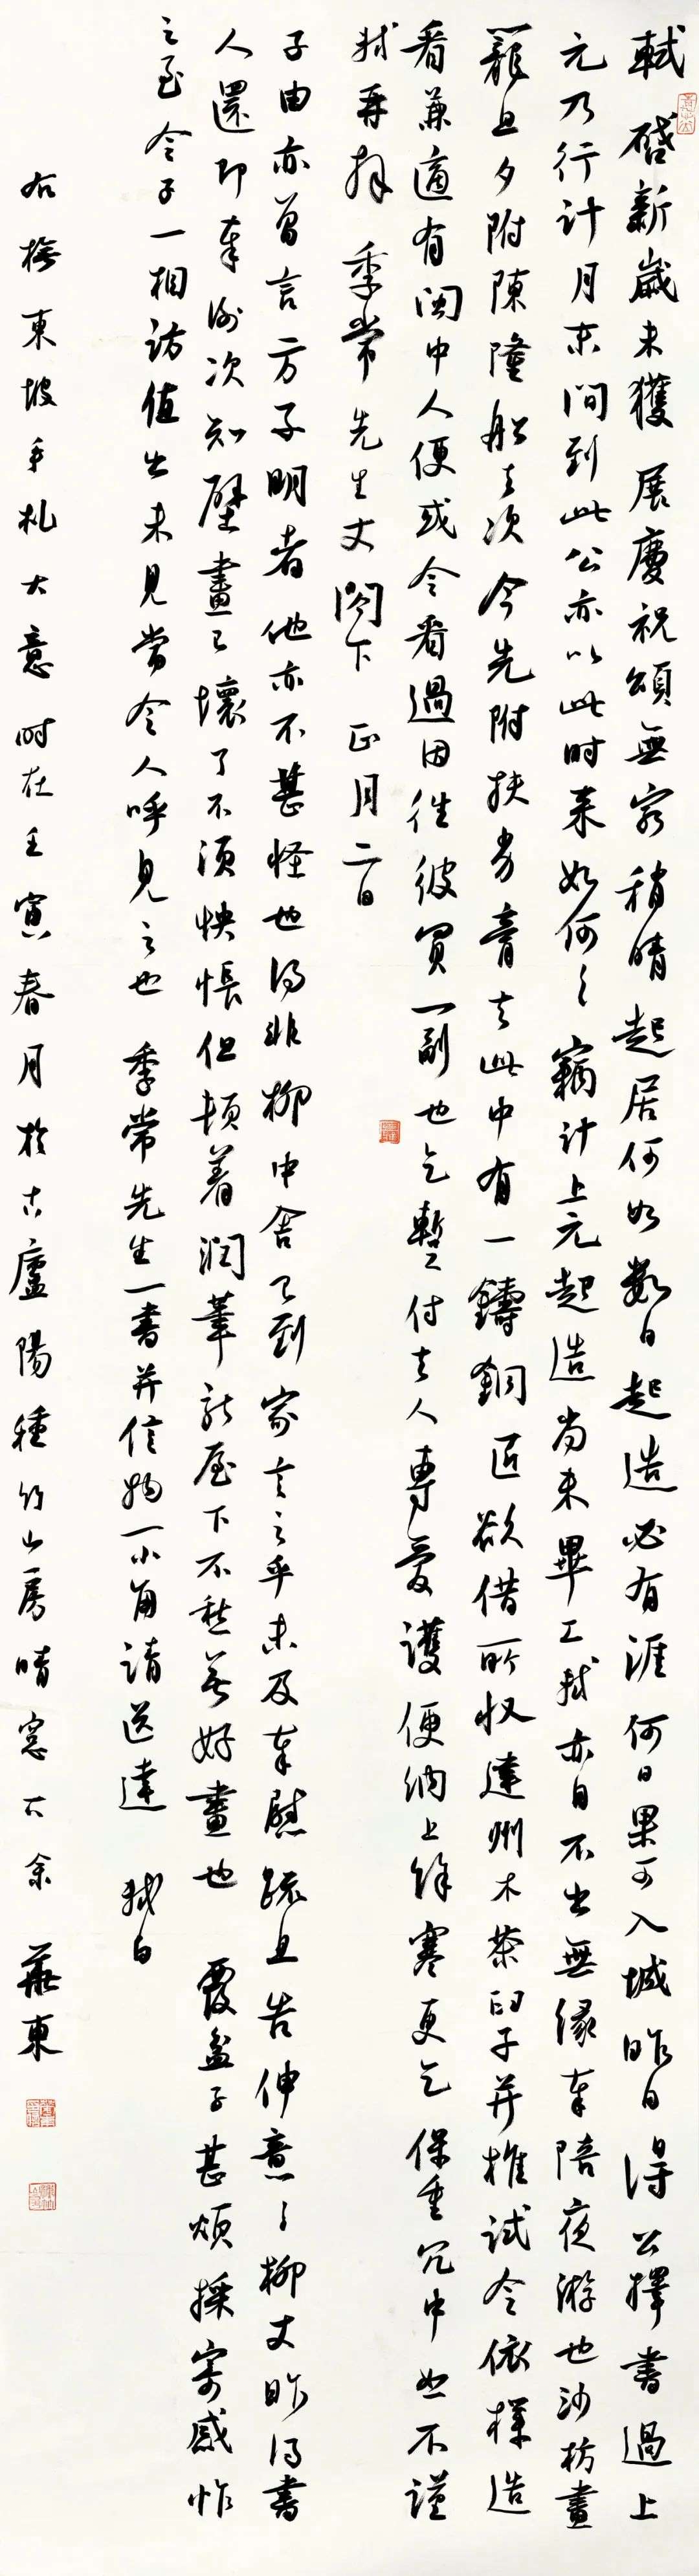 軾啓新歲未獲展慶祝頌無窮稍晴起居何如數日起造必有涯何日果可入城昨日得公擇書過上
元乃行計月末間到此公亦以此時來如何〻竊計上元起造尚未畢工軾亦自不出無緣奉陪夜游也沙枋畫
籠旦夕附陳隆船去次今先附扶劣膏去此中有一鑄銅匠欲借所收建州木茶臼子并椎試令依樣造
看兼適有閩中人便或令看過因往彼買一副也乞暫付去人專愛護便納上餘寒更乞保重冗中恕不謹
軾再拜 季常先生丈閤下 正月二日
子由亦曾言方子明者他亦不甚怪也得非柳中舍已到家言之乎未及奉慰疏且告伸意〻柳丈昨得書
人還即奉謝次知壁畫已壞了不須怏悵但頓着潤筆新屋下不愁無好畫也 覆盆子甚煩採寄感怍
之至令子一相訪值出未見當令人呼見之也 季常先生一書并信物一小角請送達 軾白
右橅東坡手札大意 時在壬寅春月於古廬陽種竹山房晴窓下 余華東